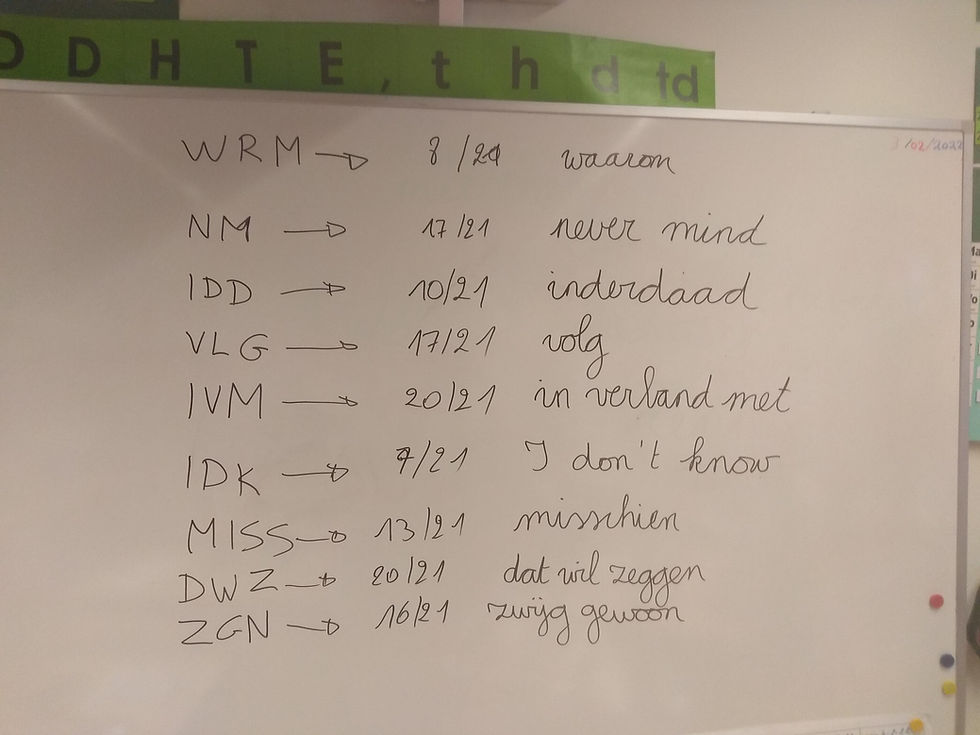 D D H T E , t h d td
3/02/2022
WRM → 8/21 waarom
NM → 17/21 never mind
IDD → 10/21 inderdaad
VLG → 17/21 volg
IVM → 20/21 in verland met
IDK → 7/21 I don't know
MISS → 13/21 misschien
DWZ → 20/21 dat wil zeggen
ZGN → 16/21 zwijg gewoon